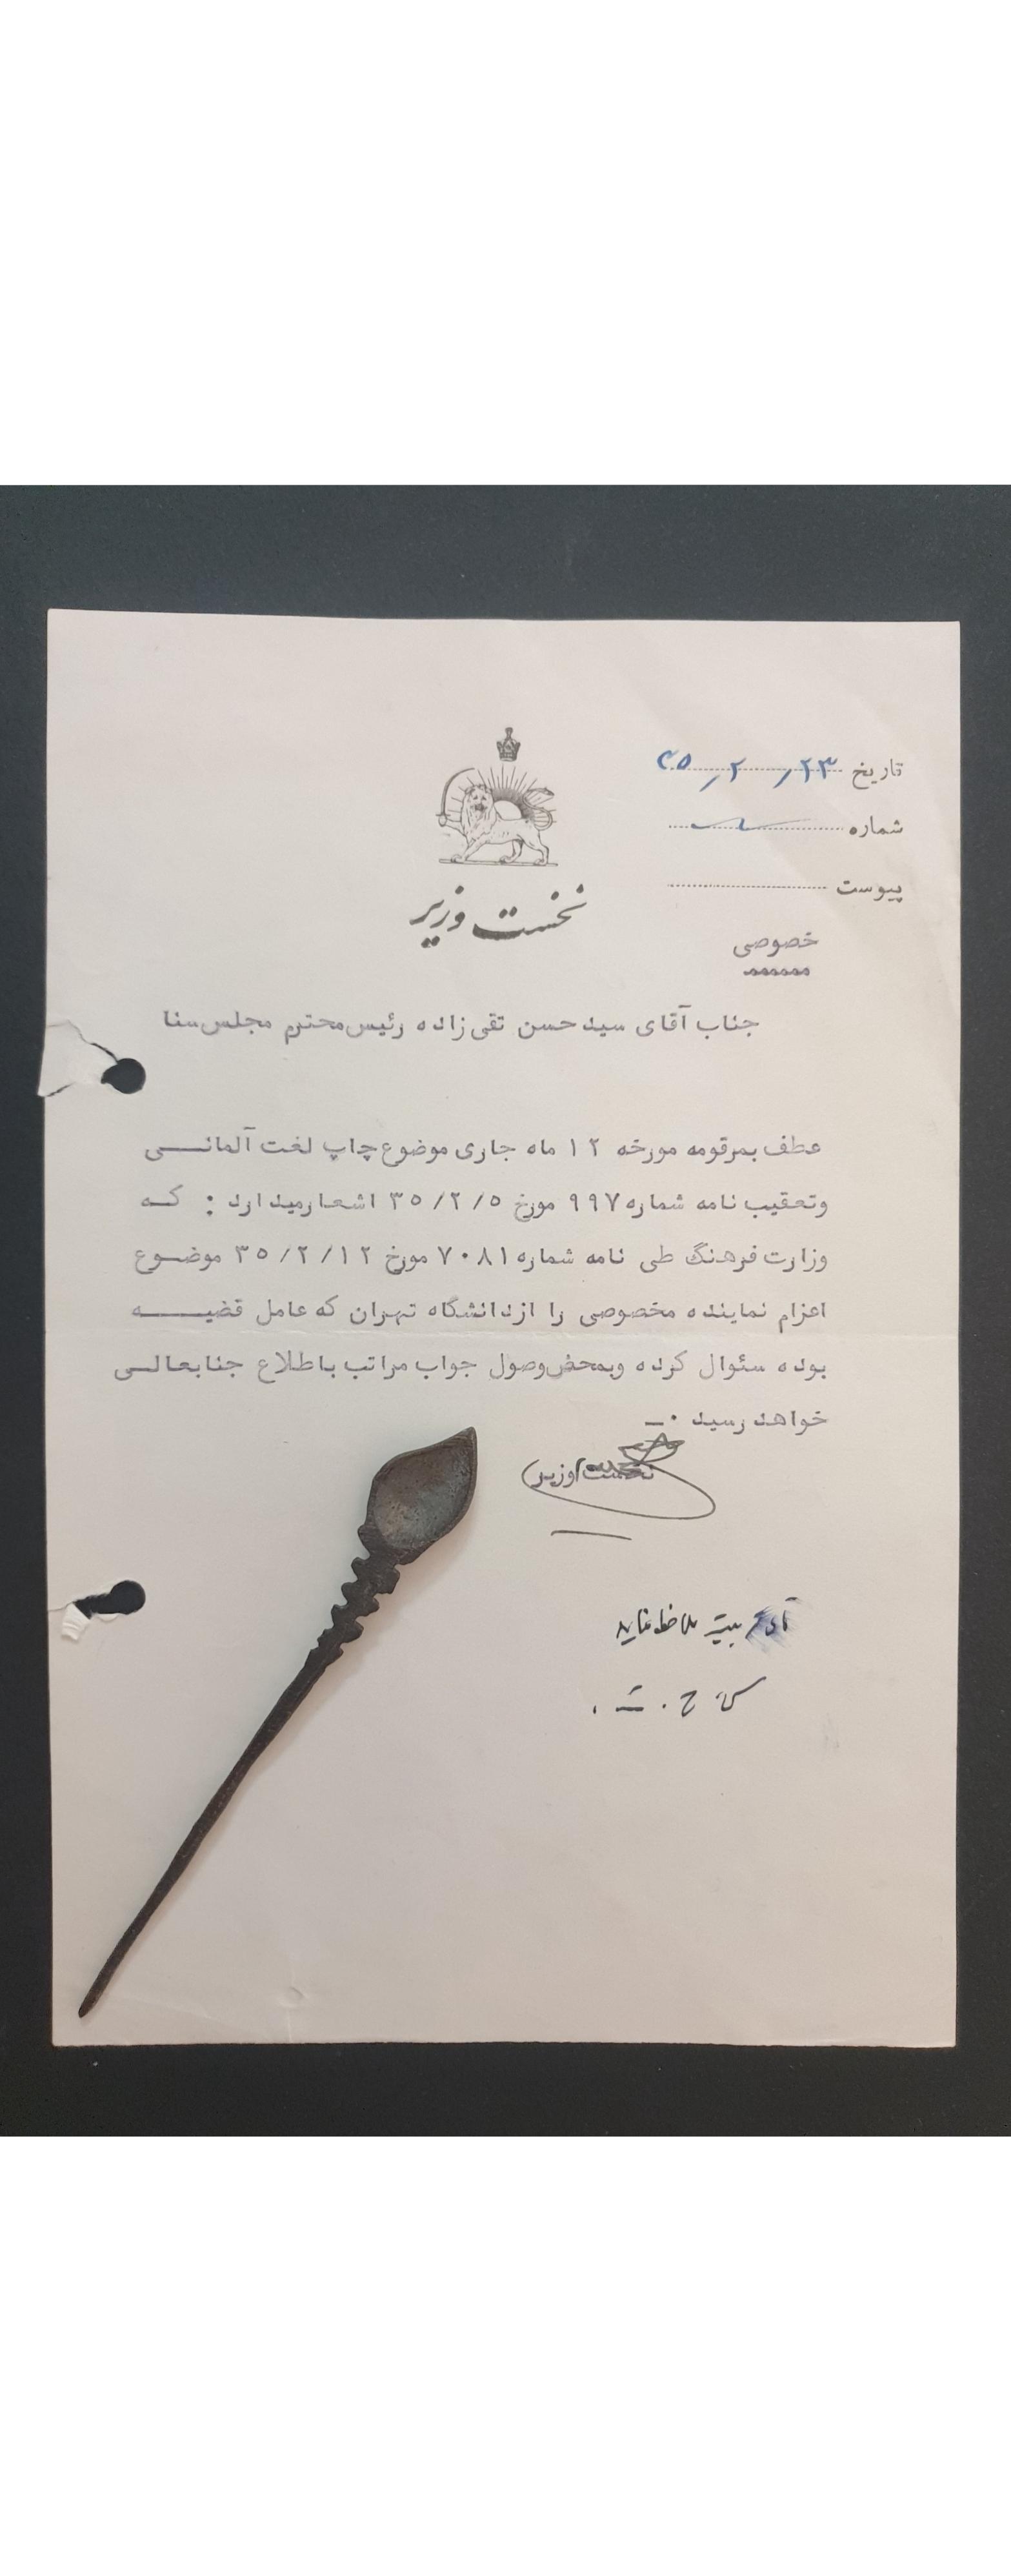 تاریخ ۲۳/۲/۳۵
شماره
پیوست
نخست وزیر
خصوصی
جناب آقای سید حسن تقی زاده رئیس محترم مجلس سنا
عطف بمرقومه مورخه ۱۲ ماه جاری موضوع چاپ لغت آلمانی
وتعقیب نامه شماره ۹۹۷ مورخ ۳۵/۲/۵ اشعار میدارد : که
وزارت فرهنگ طی نامه شماره ۷۰۸۱ مورخ ۳۵/۲/۱۲ موضوع
اعزام نماینده مخصوصی را از دانشگاه تهران که عامل قضیه
بوده سئوال کرده وبمحض وصول جواب مراتب باطلاع جنابعالی
خواهد رسید .ـ
نخست وزیر
ملاحظه نمایند
س ح . ت .